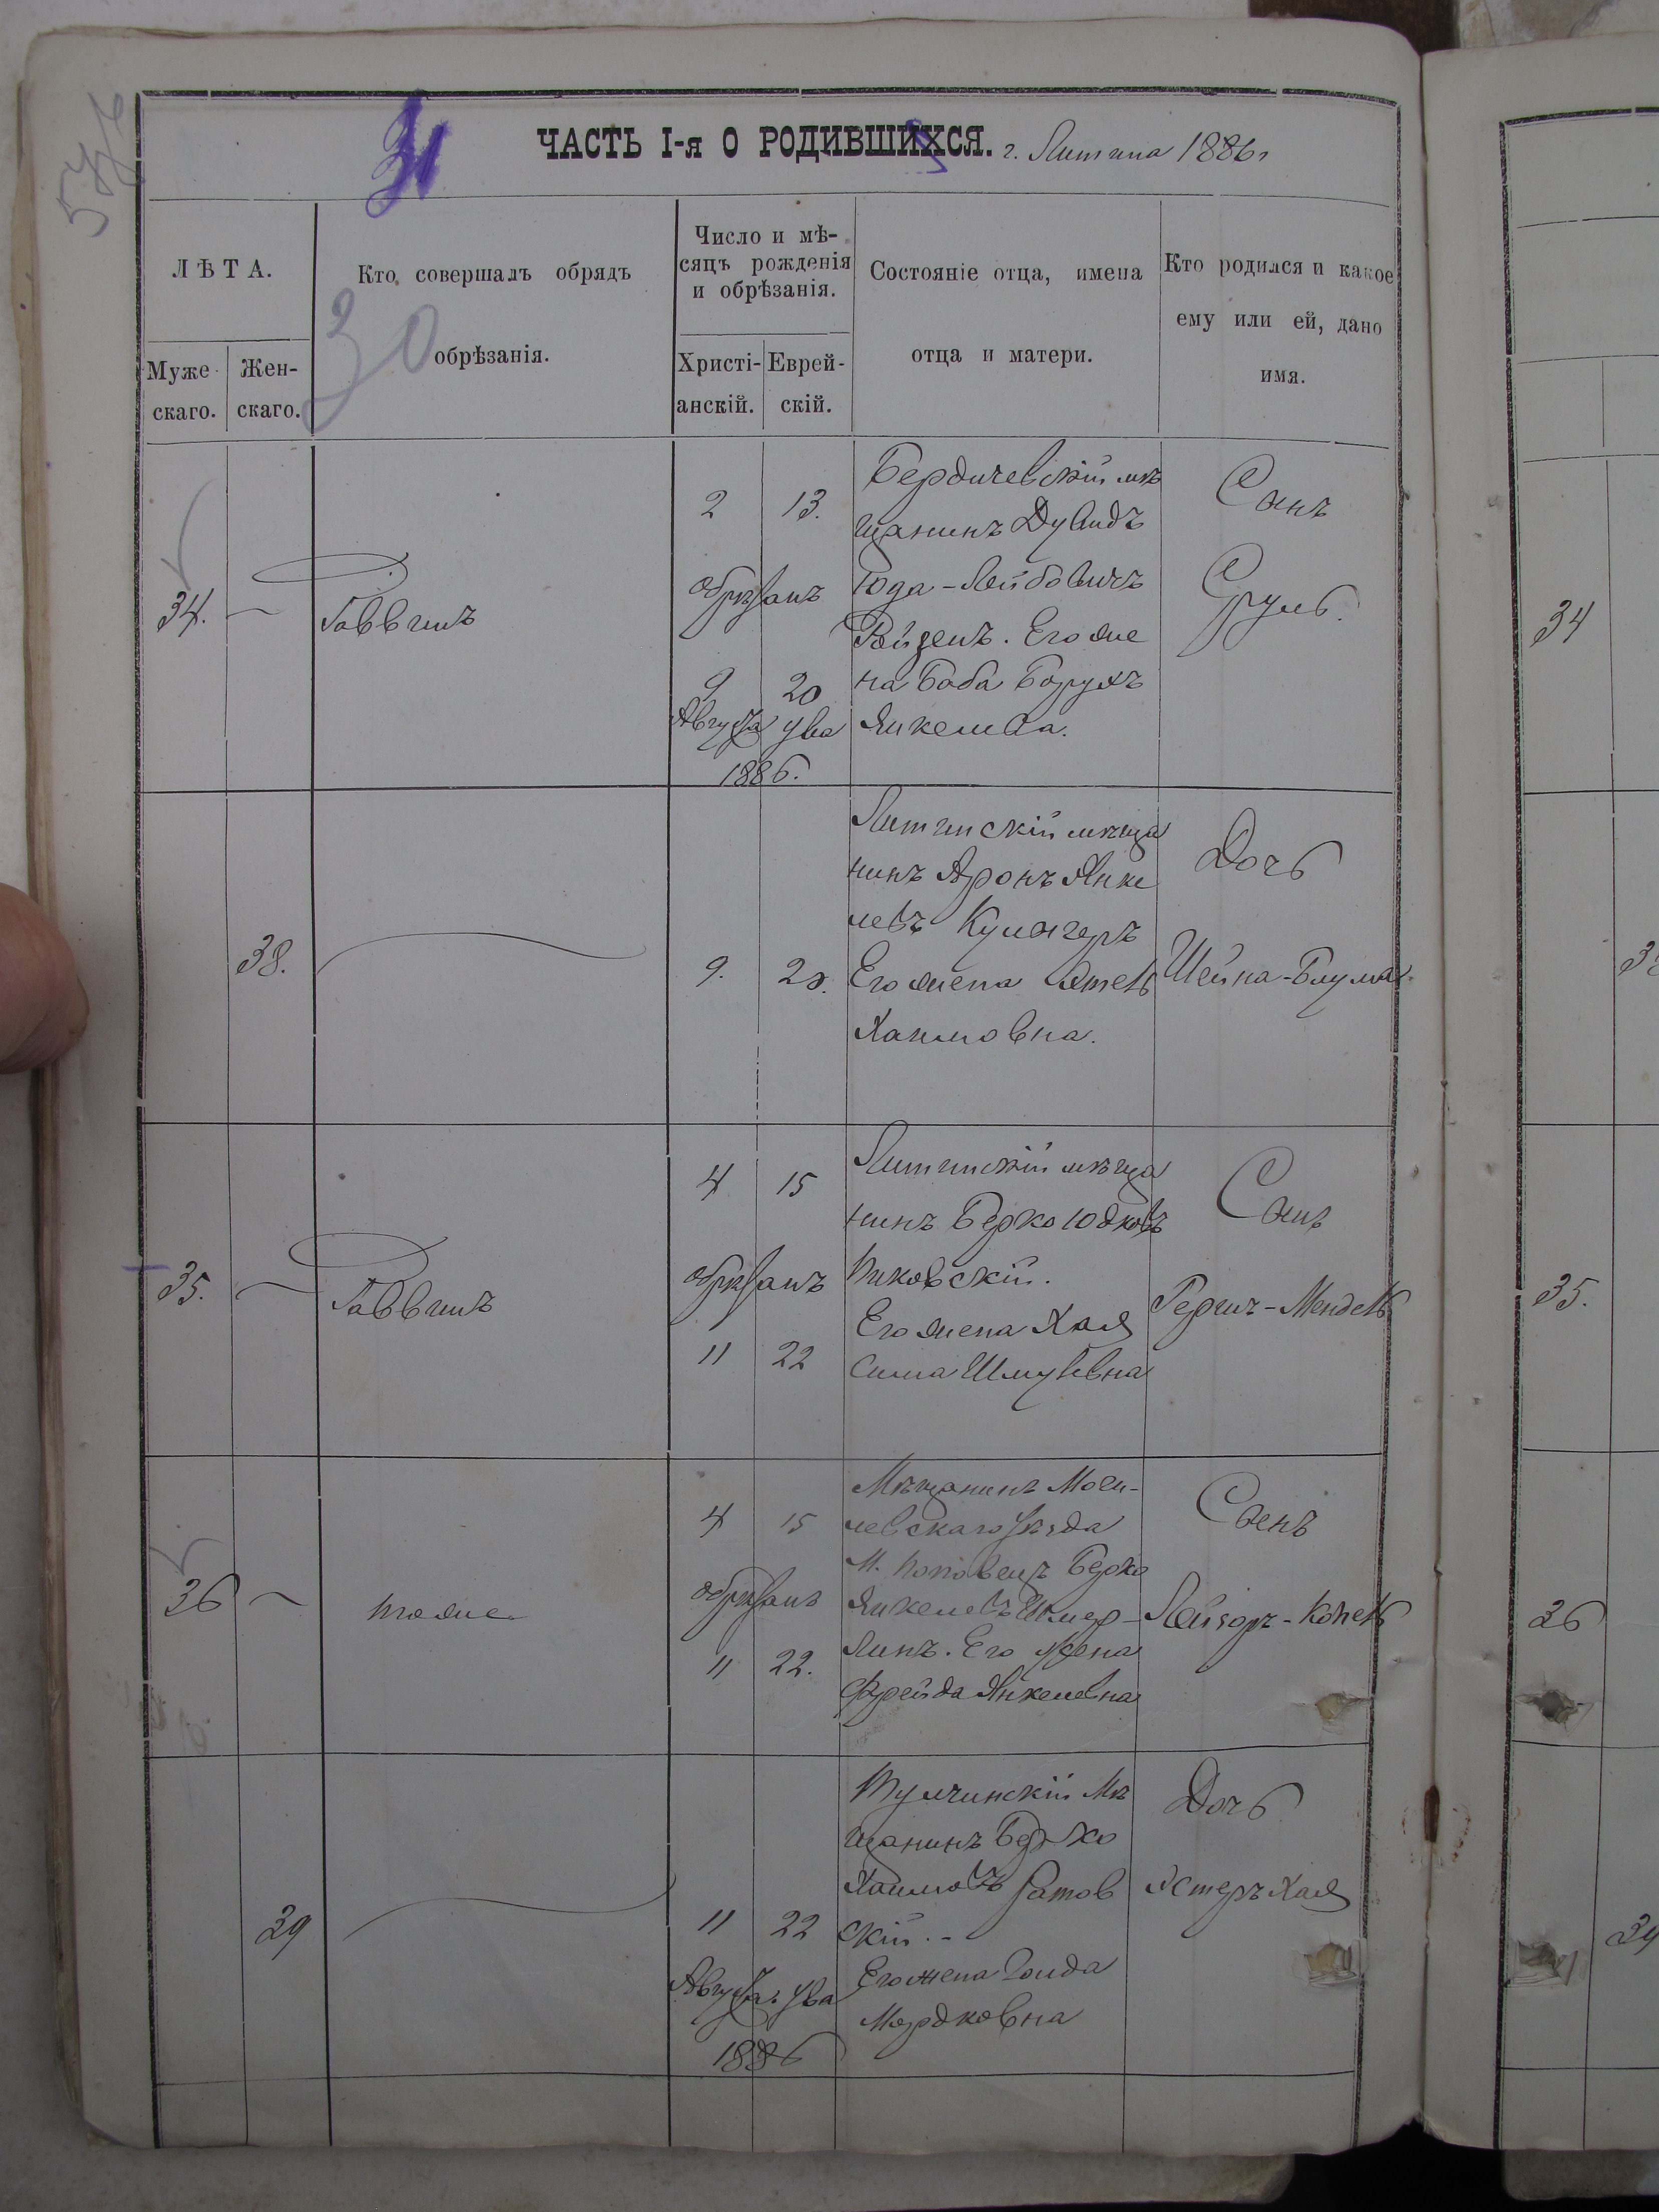 ЧАСТЬ I-я О РОДИВШИХСЯ. г. Литина 1886 г
31
30
ЛѢТА.
Муже-
скаго.
Жен-
скаго.
Кто совершалъ обрядъ
обрѣзанія.
Число и мѣ-
сяцъ рожденія
и обрѣзанія.
Христі-
анскій.
Еврей-
скій.
Состояніе отца, имена
отца и матери.
Кто родился и какое
ему или ей, дано
имя.
34. —
Раввинъ
2 13.
обрѣзанъ
9 20
Августа Ува
1886.
Бердичевскій мѣ
щанинъ Дувидъ
Юда-Лейбовичъ
Ройзенъ. Его же
на Баба Борухъ
Янкелева.
Сынъ
Сруль.
38.
9. 20.
Литинскій мѣща
нинъ Аронъ Янке
левъ
Его жена
Хаимовна.
Дочь
Шейна-Блума
35. —
Раввинъ
4 15
обрѣзанъ
11 22
Литинскій мѣща
нинъ Берко Юдковъ
Пиковскій.
Его жена Хая
Сима Шмулевна
Сынъ
Гершъ-Мендель
36 —
тоже
4 15
обрѣзанъ
11 22.
Мѣщанинъ Моги-
левскаго уѣзда
М. Поповецъ Берко
Янкелевъ Шмер-
линъ. Его жена
Фрейда Янкелевна
Сынъ
Лейзоръ-Копель
39
11 22
Августа. Ува
1886
Тульчинскій Мѣ
щанинъ Берко
Хаимовъ Затов
скій.-
Его жена Голда
Мордковна
Дочь
Эстеръ Хая
34
35.
36
39